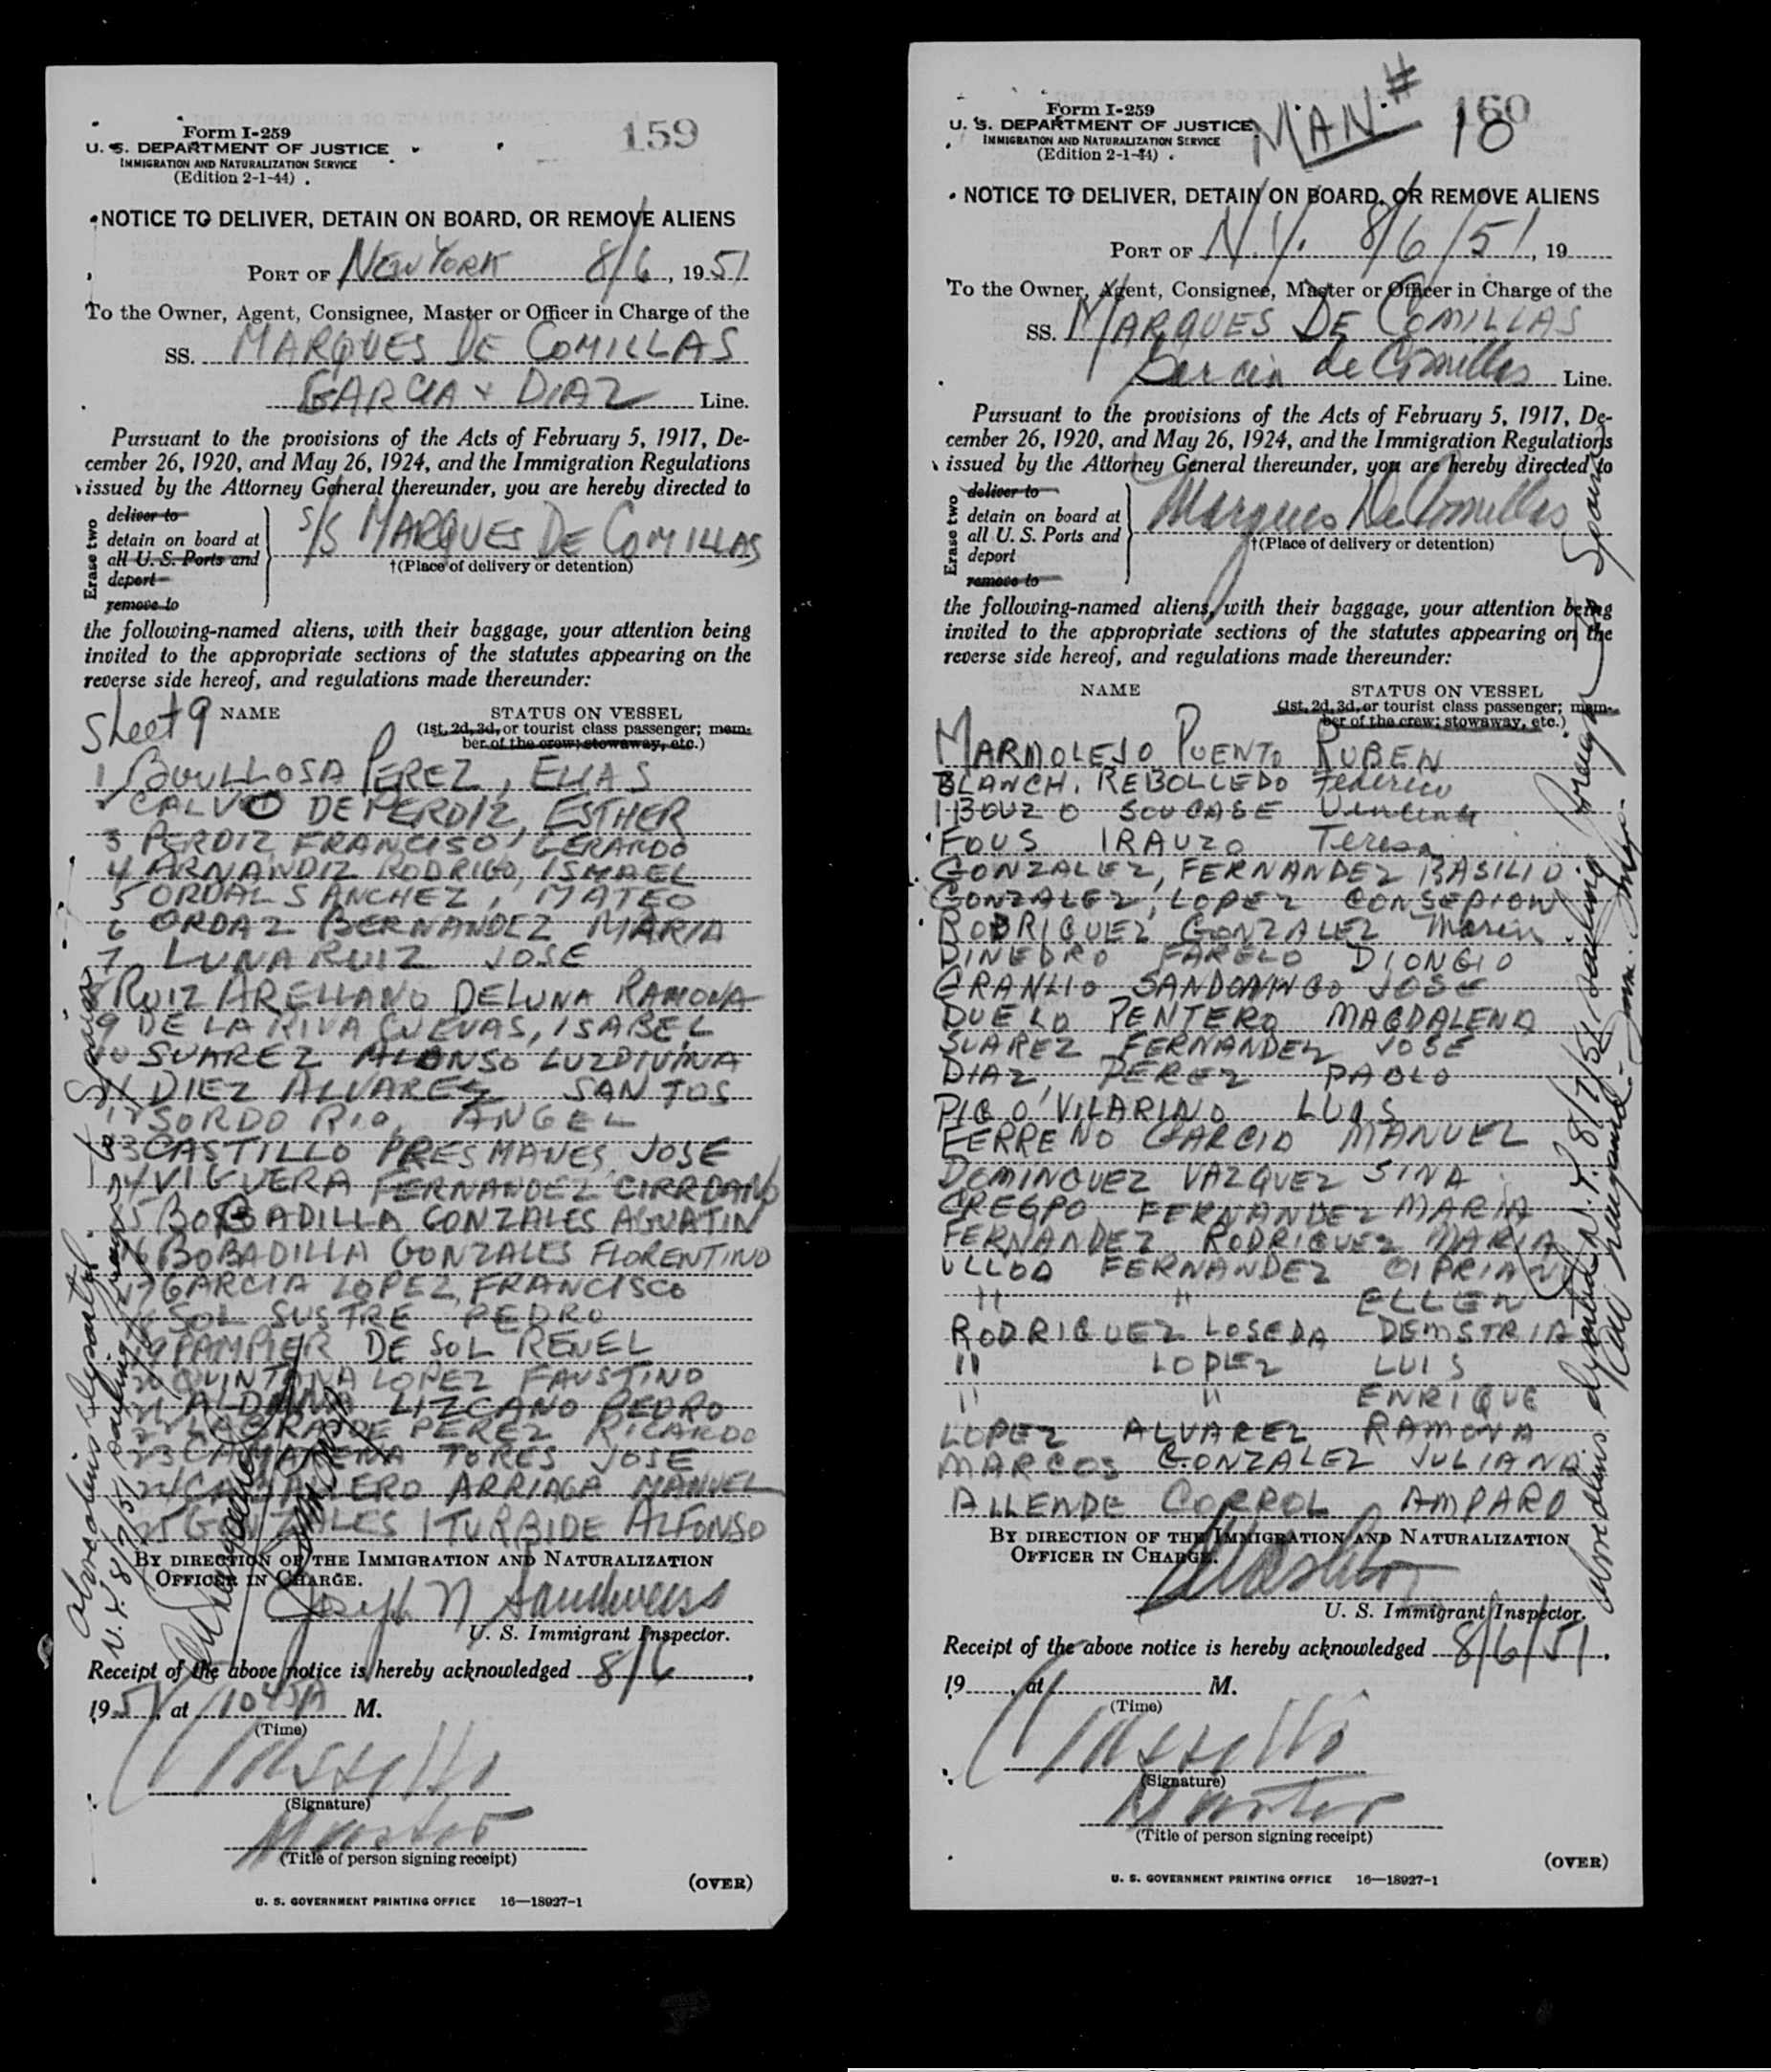 159
Form I-259
U. S. DEPARTMENT OF JUSTICE
IMMIGRATION AND NATURALIZATION SERVICE
(Edition 2-1-44)
NOTICE TO DELIVER, DETAIN ON BOARD, OR REMOVE ALIENS
PORT OF NEW YORK 8/6, 1951
To the Owner, Agent, Consignee, Master or Officer in Charge of the
SS. MARQUES DE COMILLAS
GARCIA + DIAZ Line.
Pursuant to the provisions of the Acts of February 5, 1917, De-
cember 26, 1920, and May 26, 1924, and the Immigration Regulations
issued by the Attorney General thereunder, you are hereby directed to
Erase two
deliver to
detain on board at
all U. S. Ports and
deport
remove to
S/S MARQUES DE COMILLAS
†(Place of delivery or detention)
the following-named aliens, with their baggage, your attention being
invited to the appropriate sections of the statutes appearing on the
reverse side hereof, and regulations made thereunder:
Sheet 9 NAME STATUS ON VESSEL
(1st, 2d, 3d, or tourist class passenger; mem-
ber of the crew; stowaway, etc.)
1 BOULLOSA PEREZ, ELIAS
2 CALVO DE PERDIZ, ESTHER
3 PERDIZ FRANCISO, GERARDO
4 ARNANDIZ RODRIGO, ISMAEL
5 ORDAL SANCHEZ, MATEO
6 ORDAZ BERNANDEZ MARIA
7 LUNA RUIZ JOSE
8 RUIZ ARELLANO DELUNA RAMONA
9 DE LA RIVA CUEVAS, ISABEL
10 SUAREZ ALONSO LUZDIVINA
11 DIEZ ALVAREZ SANTOS
12 SORDO RIO, ANGEL
13 CASTILLO PRESMANES, JOSE
14 VIGUERA FERNANDEZ CIRRDANO
15 BOBADILLA GONZALES AGUATIN
16 BOBADILLA GONZALES FLORENTINO
17 GARCIA LOPEZ, FRANCISCO
18 SOL SUSTRE PEDRO
19 PAMPIER DE SOL RENEL
20 QUINTANA LOPEZ FAUSTINO
21 ALDAMA LIZCANO PEDRO
22 LABRADDE PEREZ RICARDO
23 CAMARENA TORES JOSE
24 CABALLERO ARRIAGA MANUEL
25 GONZALES ITURBIDE ALFONSO
above aliens departed
N.Y. 8/7/51 sailing foreign to Spain
BY DIRECTION OF THE IMMIGRATION AND NATURALIZATION
OFFICER IN CHARGE.
Joseph N Sandweiss
U. S. Immigrant Inspector.
Receipt of the above notice is hereby acknowledged 8/6,
1951, at 1045A M.
(Time)
(Signature)
Master
(Title of person signing receipt)
(OVER)
U. S. GOVERNMENT PRINTING OFFICE 16—18927-1
160
Form I-259
U. S. DEPARTMENT OF JUSTICE
IMMIGRATION AND NATURALIZATION SERVICE
(Edition 2-1-44)
MAN. # 10
NOTICE TO DELIVER, DETAIN ON BOARD, OR REMOVE ALIENS
PORT OF N.Y. 8/6/51, 19
To the Owner, Agent, Consignee, Master or Officer in Charge of the
SS. MARQUES DE COMILLAS
Garcia de Comillas Line.
Pursuant to the provisions of the Acts of February 5, 1917, De-
cember 26, 1920, and May 26, 1924, and the Immigration Regulations
issued by the Attorney General thereunder, you are hereby directed to
Erase two
deliver to
detain on board at
all U. S. Ports and
deport
remove to
Marques De Comillas
†(Place of delivery or detention)
the following-named aliens, with their baggage, your attention being
invited to the appropriate sections of the statutes appearing on the
reverse side hereof, and regulations made thereunder:
NAME STATUS ON VESSEL
(1st, 2d, 3d, or tourist class passenger; mem-
ber of the crew; stowaway, etc.)
MARMOLEJO PUENTO RUBEN
BLANCH, REBOLLEDO Federico
BOUZO SOUCASE
FOUS IRAUZO Teresa
GONZALEZ, FERNANDEZ BASILIO
GONZALEZ, LOPEZ CONSEPION
RODRIGUEZ GONZALEZ Maria
DINEDRO FARELO DIONGIO
GRANLIO SANDOMINGO JOSE
DUELO PENTERO MAGDALENA
SUAREZ FERNANDEZ JOSE
DIAZ, PEREZ PABLO
PIG O'VILARINO LUIS
FERRENO GARCIA MANUEL
DOMINQUEZ VAZQUEZ SINA
CREGPO FERNANDEZ MARIA
FERNANDEZ RODRIGUEZ MARIA
ULLOA FERNANDEZ CIPRIAN
" " ELLEN
RODRIGUEZ LOSEDA DEMSTRIA
" LOPEZ LUIS
" " ENRIQUE
LOPEZ ALVAREZ RAMONA
MARCOS GONZALEZ JULIANA
ALLENDE CORROL AMPARO
above aliens departed N.Y. 8/7/51 sailing foreign to Spain
BY DIRECTION OF THE IMMIGRATION AND NATURALIZATION
OFFICER IN CHARGE.
U. S. Immigrant Inspector.
Receipt of the above notice is hereby acknowledged 8/6/51,
19, at M.
(Time)
(Signature)
Master
(Title of person signing receipt)
(OVER)
U. S. GOVERNMENT PRINTING OFFICE 16—18927-1